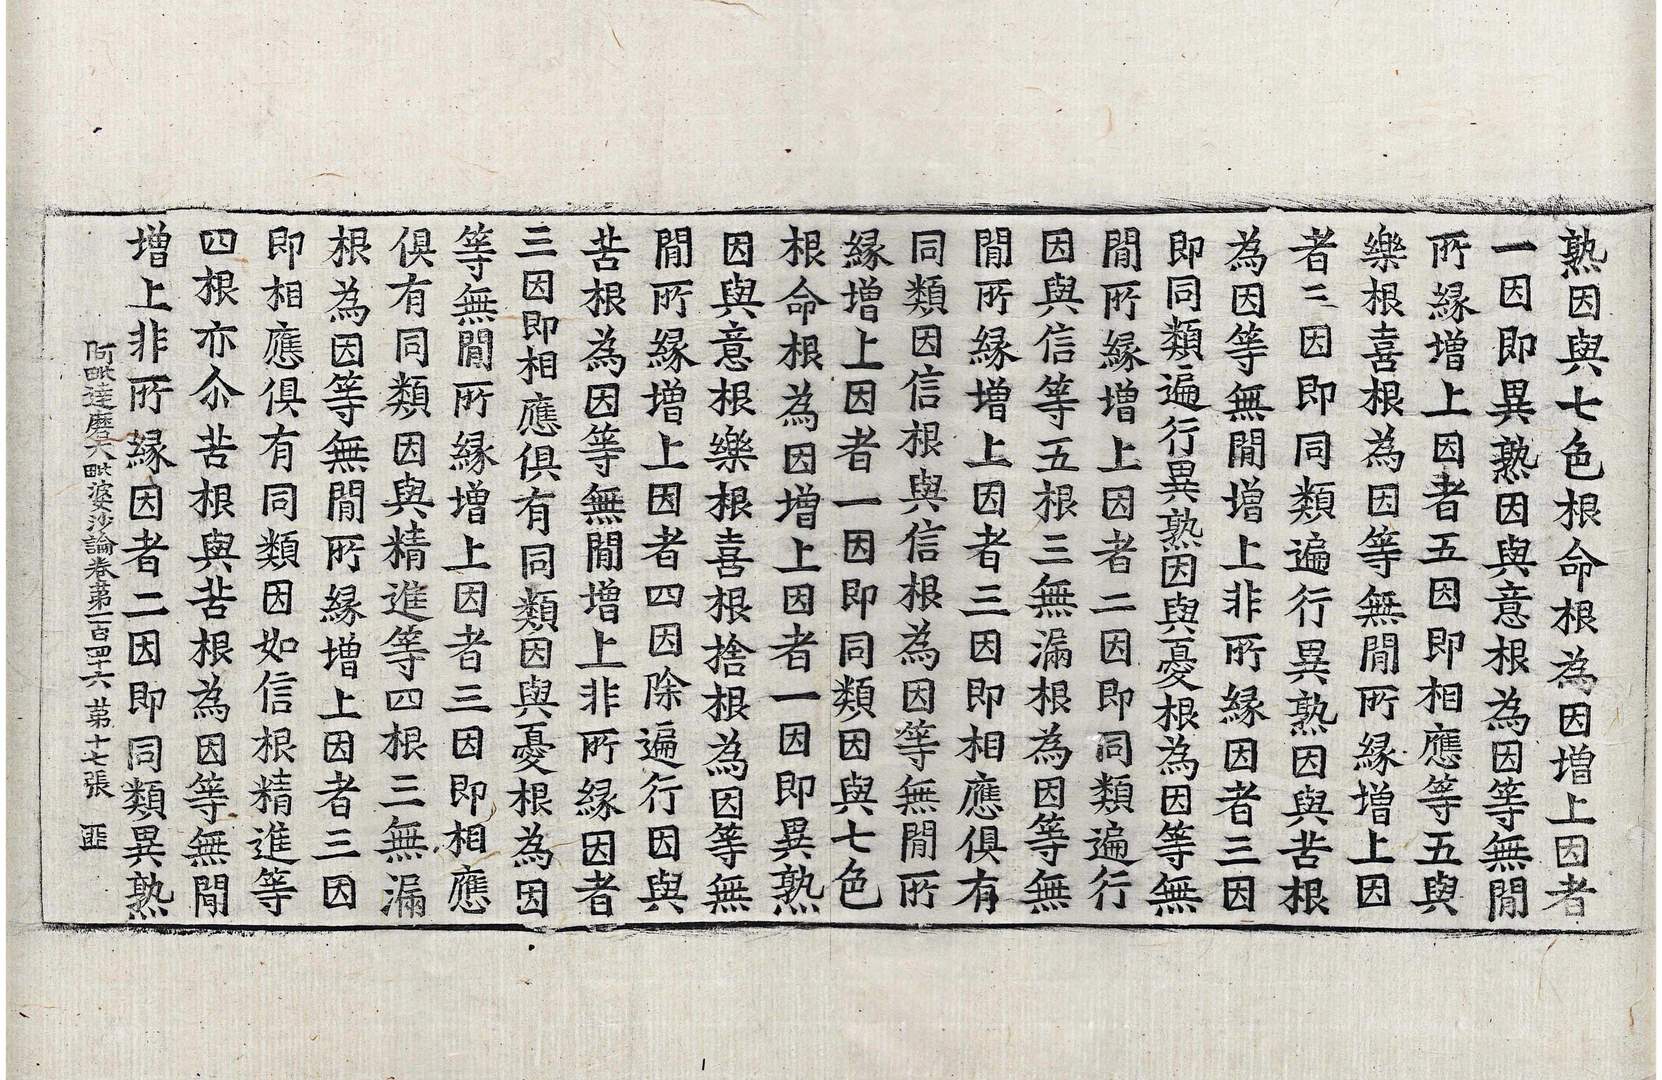 熟因與七色根命根為因增上因者
一因即異熟因與意根為因等無間
所緣增上因者五因即相應等五與
樂根喜根為因等無間所緣增上因
者三因即同類遍行異熟因與苦根
為因等無間增上非所緣因者三因
即同類遍行異熟因與憂根為因等無
間所緣增上因者二因即同類遍行
因與信等五根三無漏根為因等無
間所緣增上因者三因即相應俱有
同類因信根與信根為因等無間所
緣增上因者一因即同類因與七色
根命根為因增上因者一因即異熟
因與意根樂根喜根捨根為因等無
間所緣增上因者四因除遍行因與
苦根為因等無間增上非所緣因者
三因即相應俱有同類因與憂根為因
等無間所緣增上因者三因即相應
俱有同類因與精進等四根三無漏
根為因等無間所緣增上因者三因
即相應俱有同類因如信根精進等
四根亦尒苦根與苦根為因等無間
增上非所緣因者二因即同類異熟
阿毗達磨大毗婆沙論卷第一百四十六 第十七張 匪